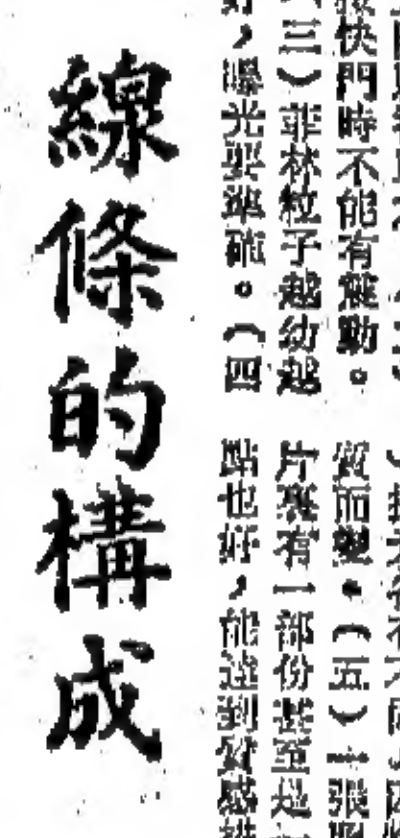 按快門時不能有震動。
（三）菲林粒子越幼越
好，曝光要準確。（四
質而變。（五）一張照
片裏有一部份甚至是
點也好，能達到質感
線條的構成